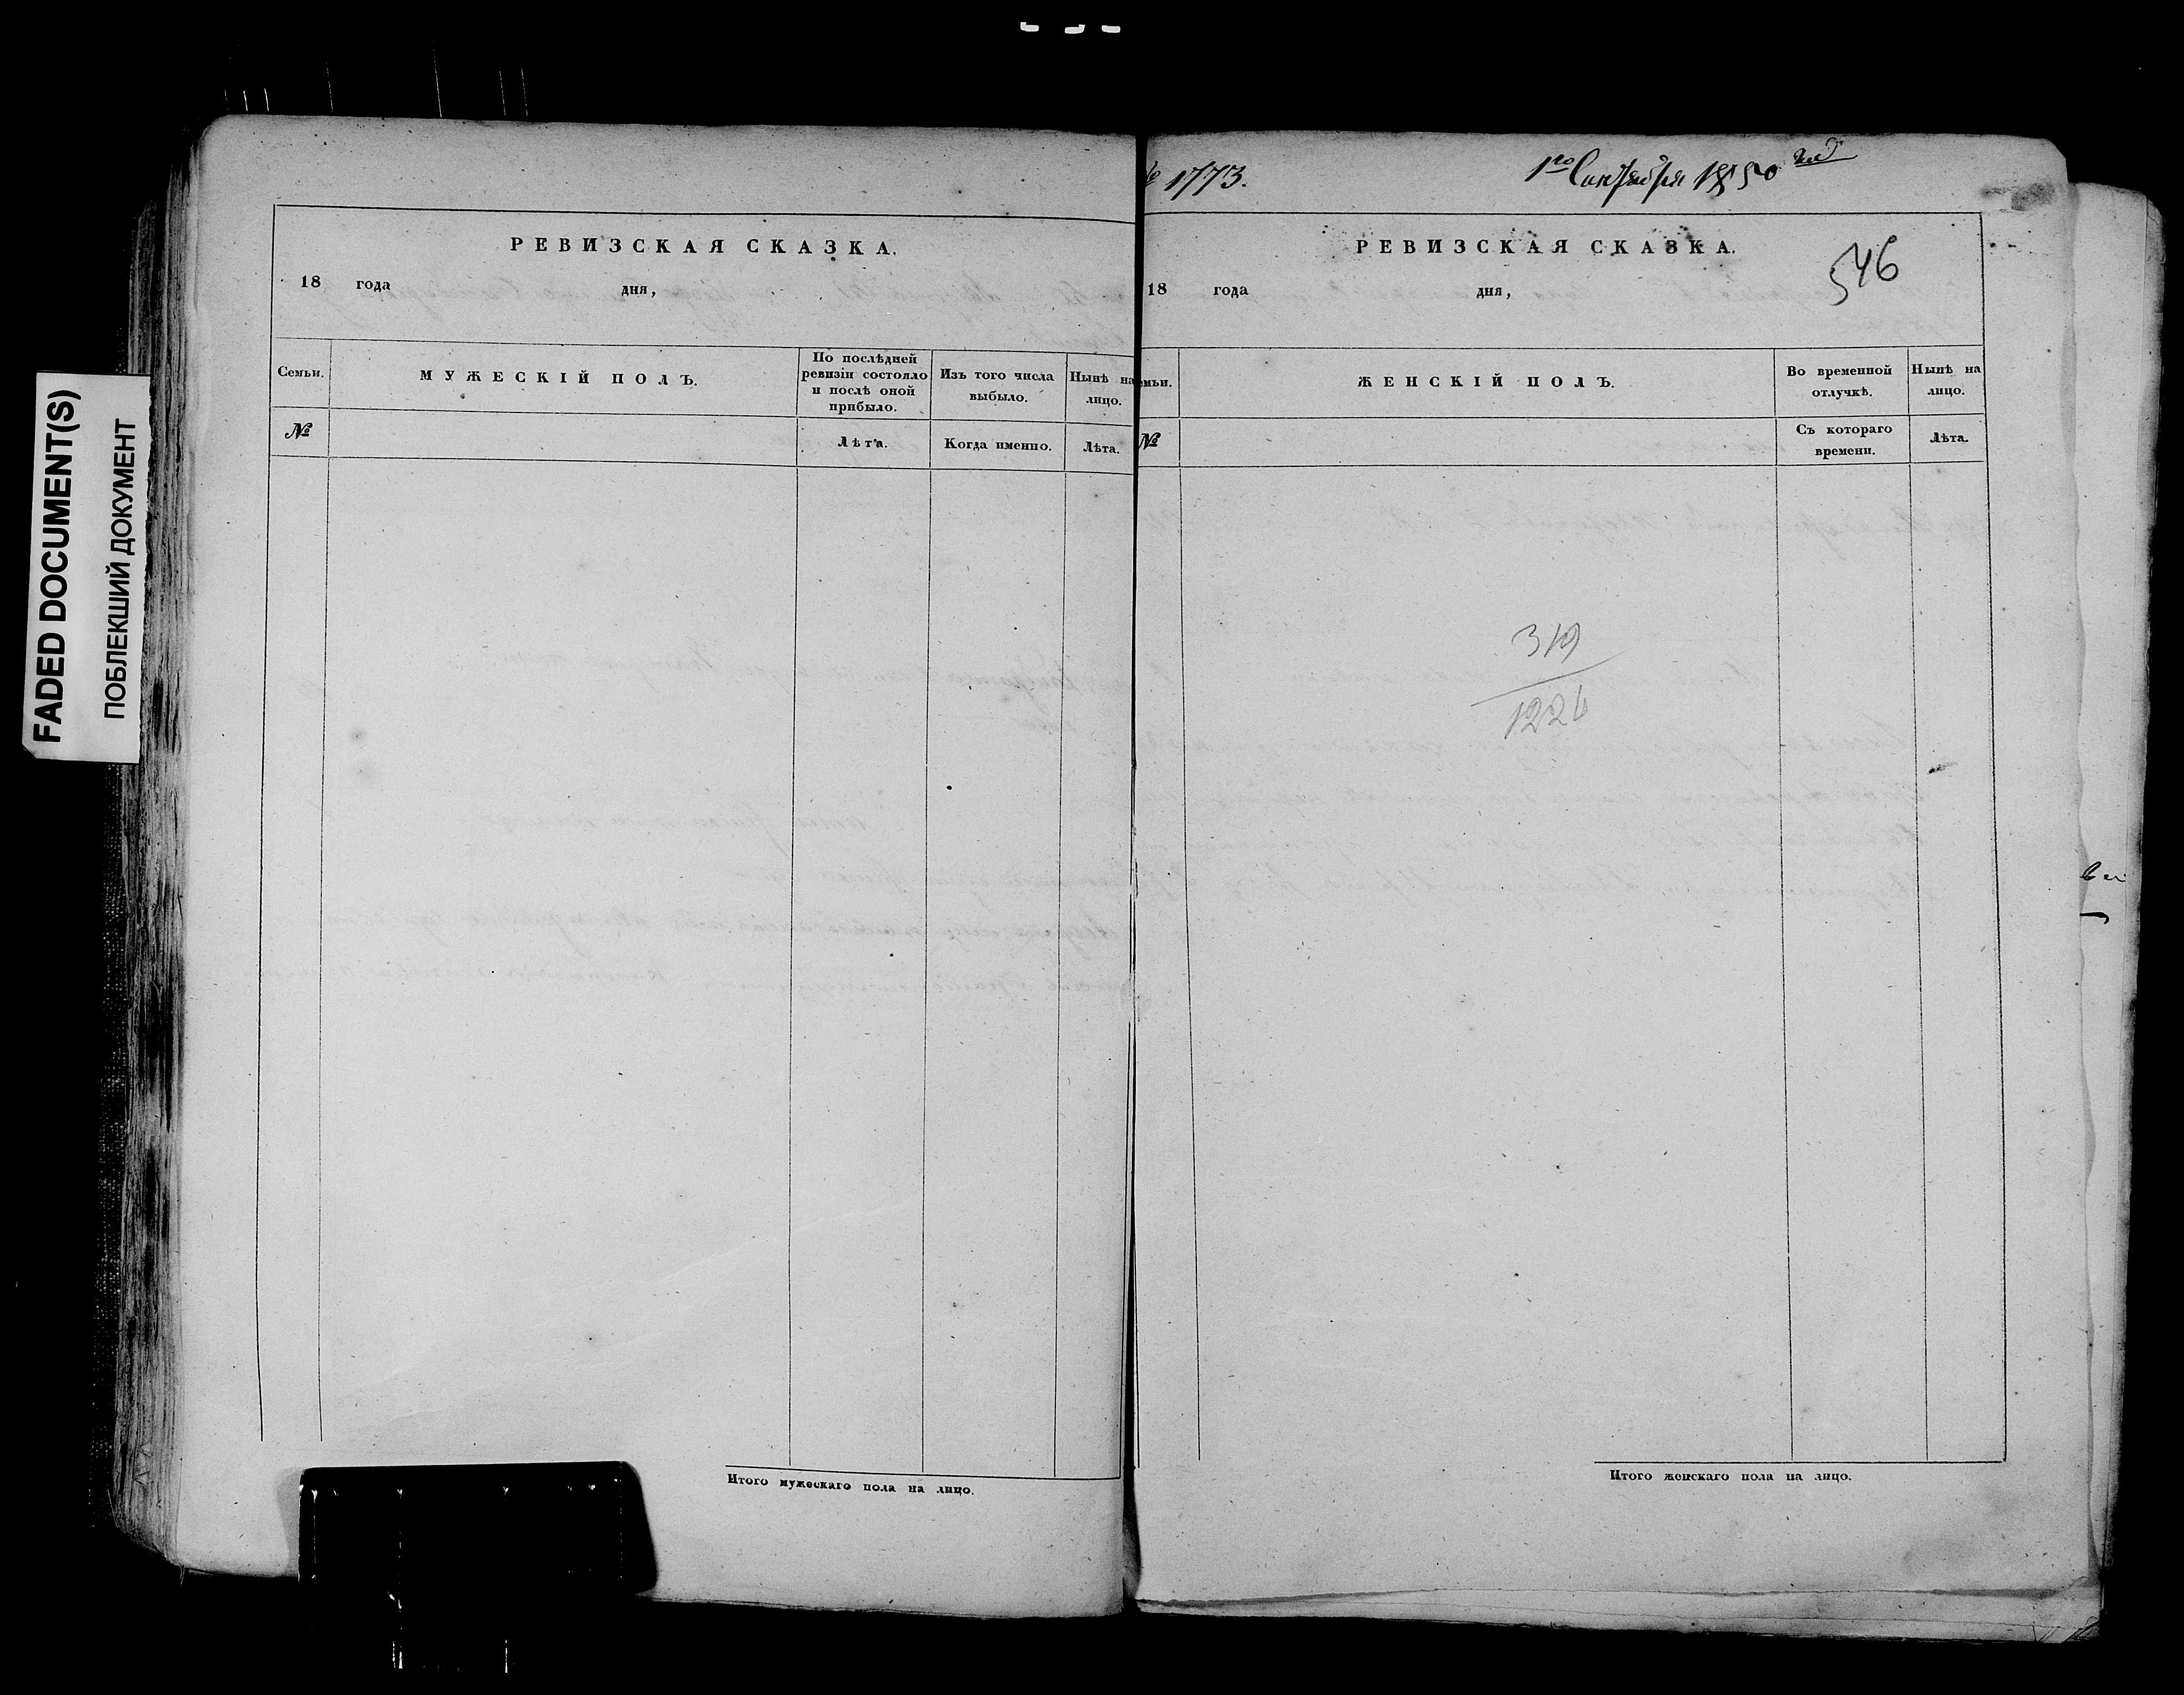 FADED DOCUMENT(S)
ПОБЛЕКШИЙ ДОКУМЕНТ
РЕВИЗСКАЯ СКАЗКА.
18 года дня,
Семьи.
МУЖЕСКІЙ ПОЛЪ.
По послѣдней
ревизіи состояло
и послѣ оной
прибыло.
Изъ того числа
выбыло.
Нынѣ на
лицо.
№
Лѣта.
Когда именно.
Лѣта.
Итого мужескаго пола на лицо.
№ 1773.
1го Сентября 1850
РЕВИЗСКАЯ СКАЗКА.
546
18 года дня,
емьи.
ЖЕНСКІЙ ПОЛЪ.
Во временной
отлучкѣ.
Нынѣ на
лицо.
№
Съ котораго
времени.
Лѣта.
319
1226
Итого женскаго пола на лицо.